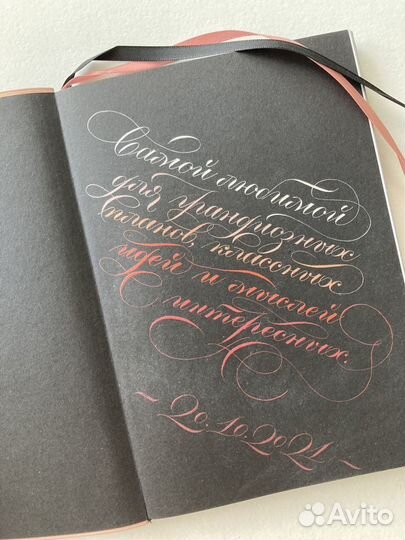 Самой любимой
для грандиозных
планов, классных
идей и мыслей
интересных.
~20.10.2021~
Avito